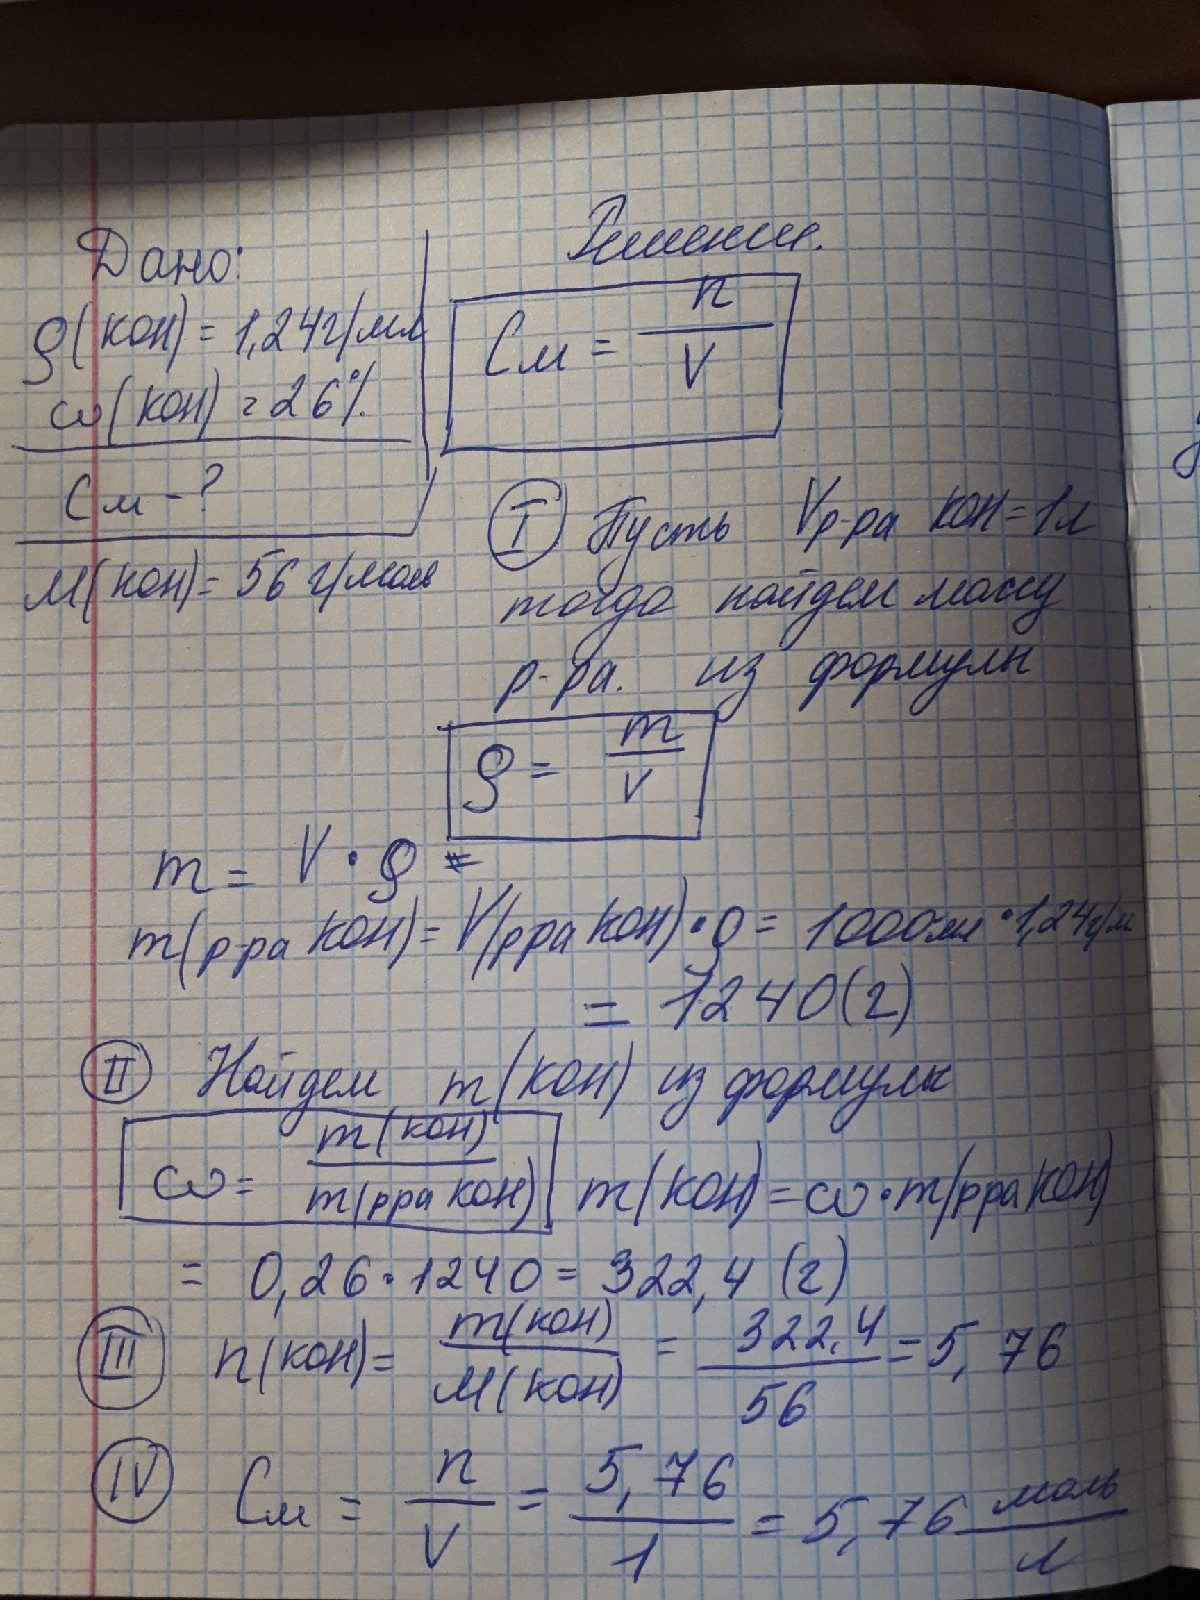 Дано:
ρ(KOH) = 1,24г/мл
ω(KOH) = 26%
См - ?
М(KOH) = 56 г/моль
Решение.
См = n/V
I Пусть Vр-ра KOH = 1л
тогда найдем массу
р-ра. из формулы
ρ = m/V
m = V · ρ =
m(р-ра KOH) = V(рра KOH) · ρ = 1000мл · 1,24г/м
= 1240(г)
II Найдем m(KOH) из формулы
ω = m(KOH)/m(рра KOH) m(KOH) = ω · m(рра KOH)
= 0,26 · 1240 = 322,4 (г)
III n(KOH) = m(KOH)/М(KOH) = 322,4/56 = 5,76
IV См = n/V = 5,76/1 = 5,76 моль/л